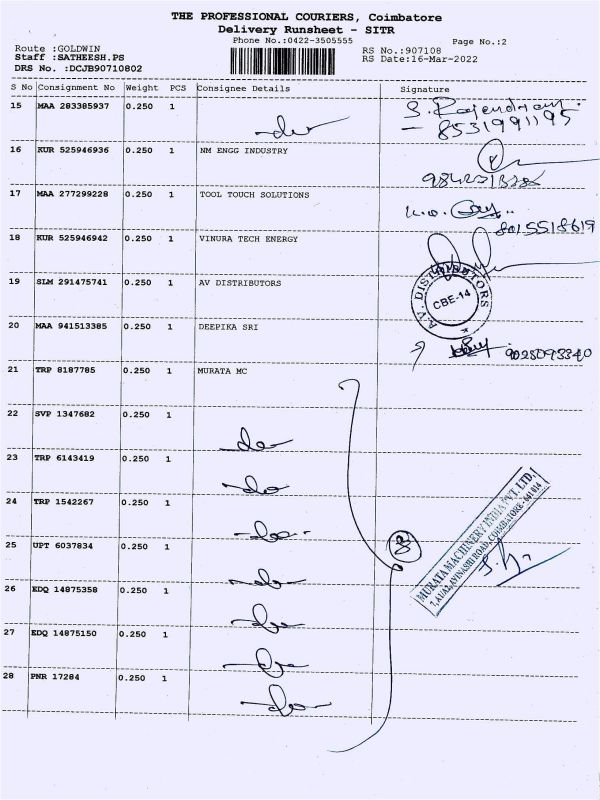 THE PROFESSIONAL COURIERS, Coimbatore
Delivery Runsheet - SITR
Phone No.:0422-3505555
Page No.:2
Route :GOLDWIN
RS No.:907108
Staff :SATHEESH.PS
RS Date:16-Mar-2022
DRS No. :DCJB90710802
S No Consignment No Weight PCS Consignee Details Signature
15 MAA 283385937 0.250 1
S. Rajendran
8531991195
16 KUR 525946936 0.250 1 NM ENGG INDUSTRY
17 MAA 277299228 0.250 1 TOOL TOUCH SOLUTIONS
8015518619
18 KUR 525946942 0.250 1 VINURA TECH ENERGY
19 SLM 291475741 0.250 1 AV DISTRIBUTORS
A.V. DISTRIBUTORS
CBE-14
20 MAA 941513385 0.250 1 DEEPIKA SRI
21 TRP 8187785 0.250 1 MURATA MC
22 SVP 1347682 0.250 1
23 TRP 6143419 0.250 1
24 TRP 1542267 0.250 1
25 UPT 6037834 0.250 1
8
MURATA MACHINERY INDIA PVT. LTD.,
AVINASHI ROAD, COIMBATORE - 641 014
26 EDQ 14875358 0.250 1
27 EDQ 14875150 0.250 1
28 PNR 17284 0.250 1